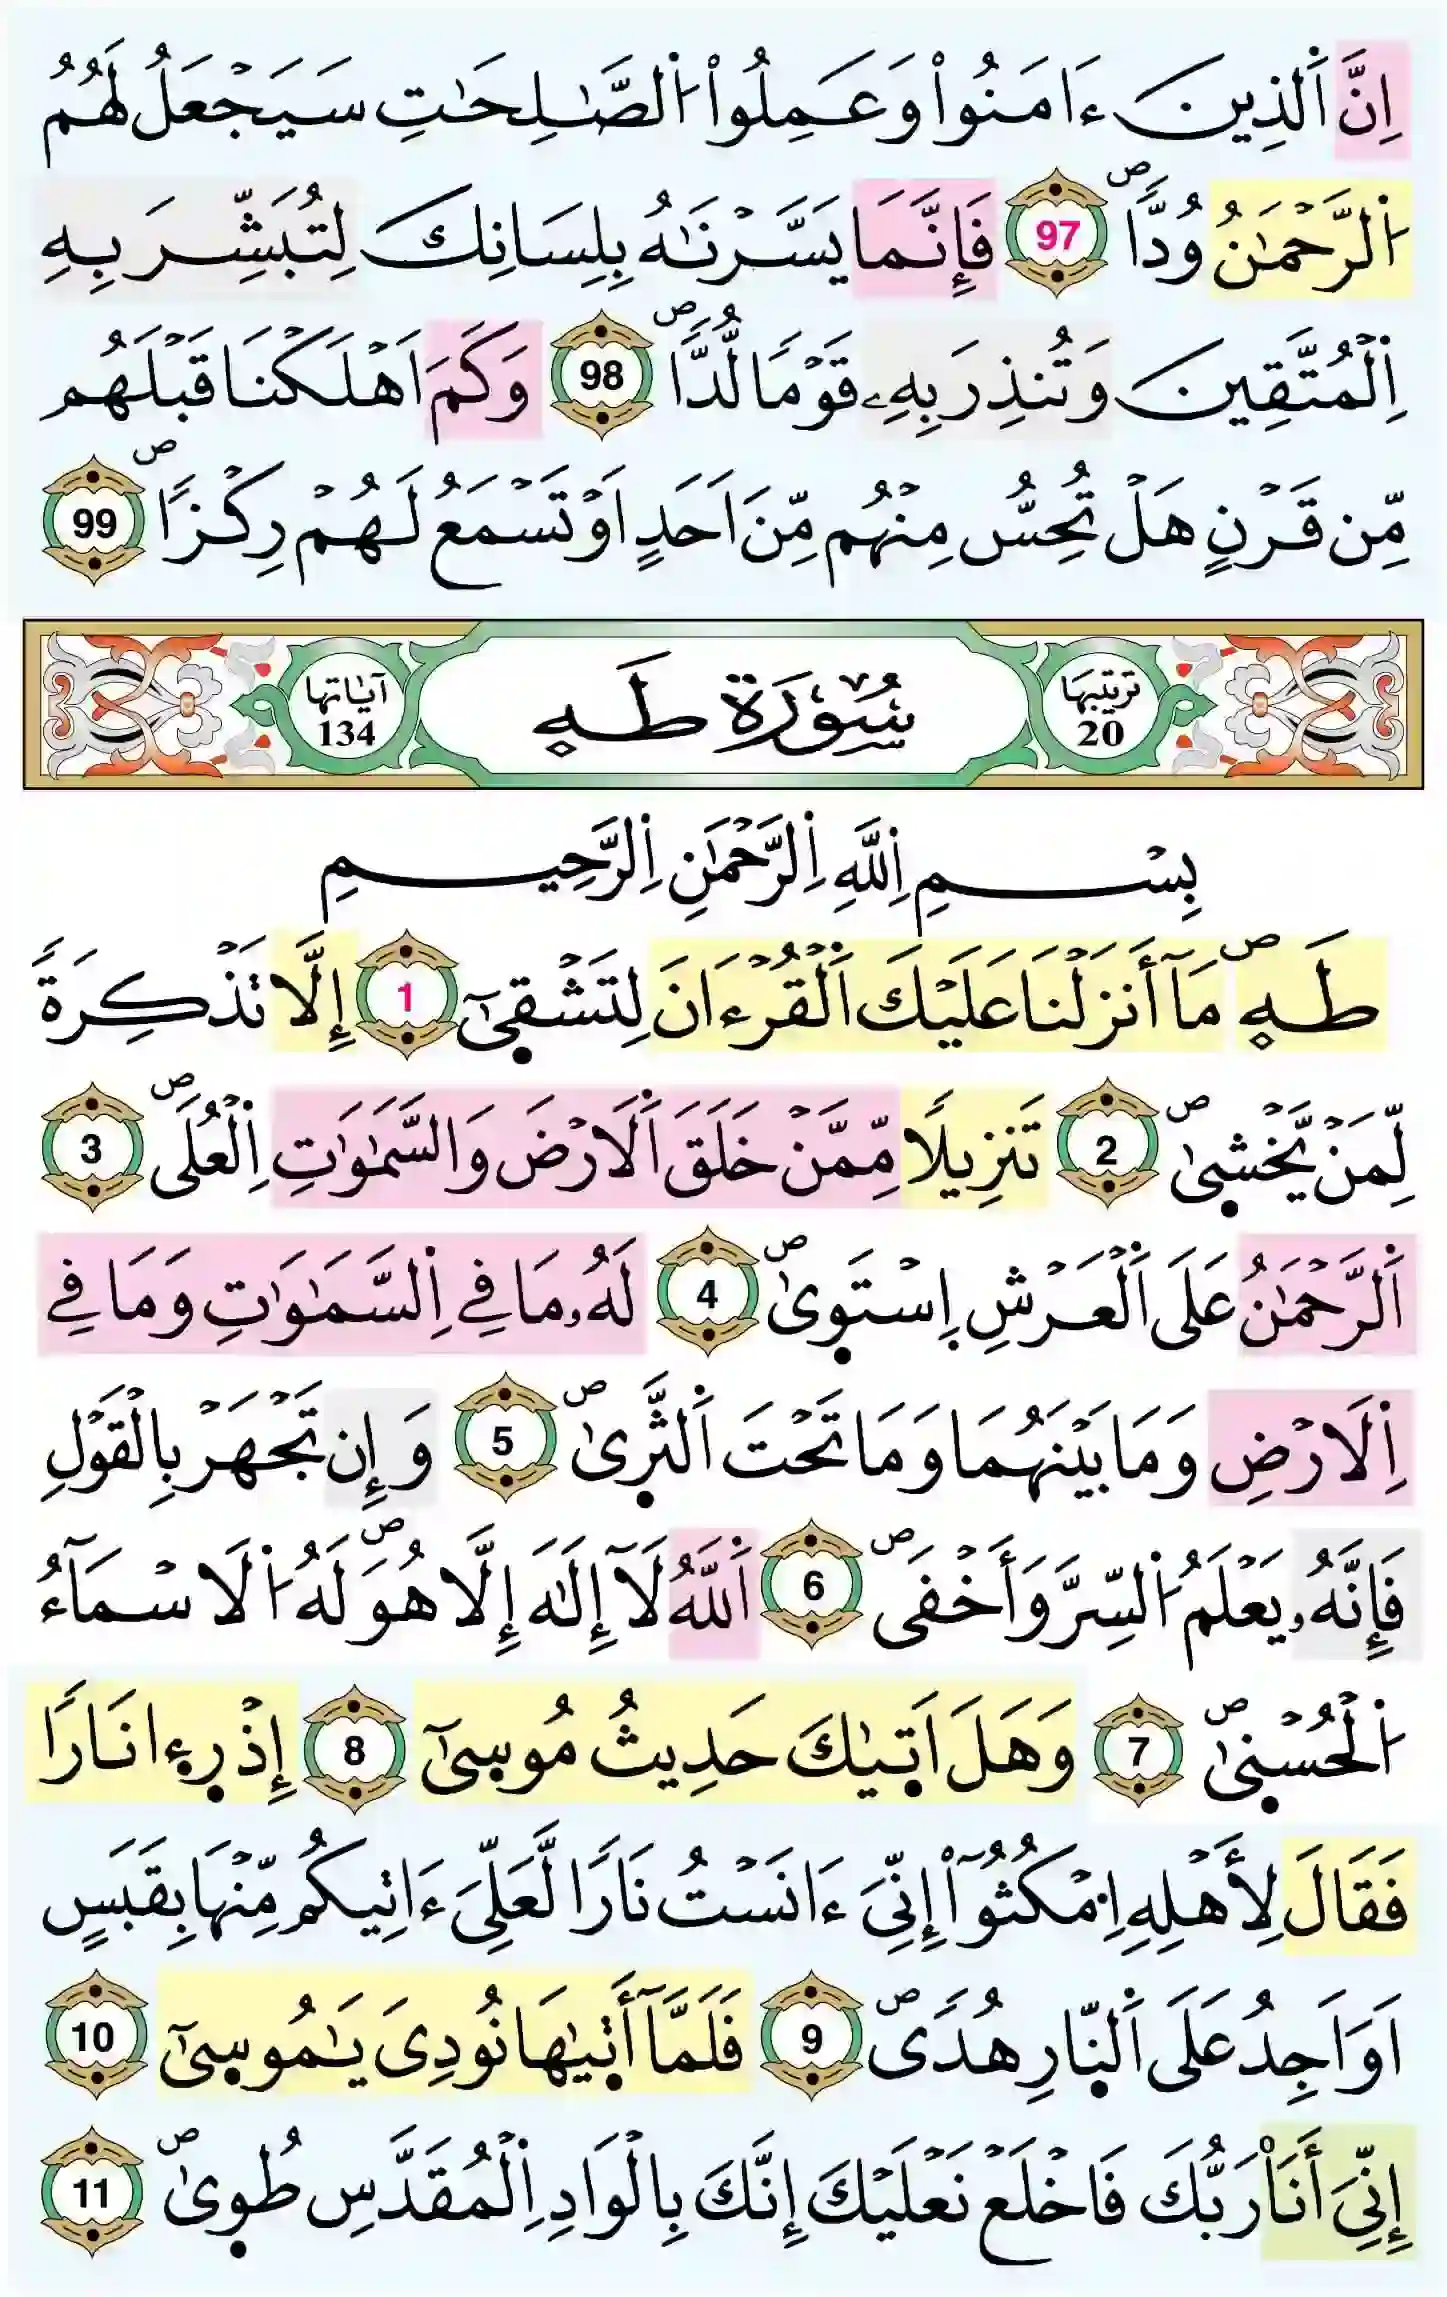 اِنَّ اَ۬لذِينَ ءَامَنُواْ وَعَمِلُواْ اُ۬لصَّٰلِحَٰتِ سَيَجْعَلُ لَهُمُ
اُ۬لرَّحْمَٰنُ وُدّاٗۖ 97 فَإِنَّمَا يَسَّرْنَٰهُ بِلِسَانِكَ لِتُبَشِّرَ بِهِ
اِ۬لْمُتَّقِينَ وَتُنذِرَ بِهِۦ قَوْماٗ لُّدّاٗۖ 98 وَكَمَ اَهْلَكْنَا قَبْلَهُم
مِّن قَرْنٍ هَلْ تُحِسُّ مِنْهُم مِّنَ اَحَدٍ اَوْ تَسْمَعُ لَهُمْ رِكْزاٗۖ 99
ترتيبها 20 سُورَة طَهِ آياتها 134
بِسْمِ اِ۬للَّهِ اِ۬لرَّحْمَٰنِ اِ۬لرَّحِيمِ
طَهِۖ مَآ أَنزَلْنَا عَلَيْكَ اَ۬لْقُرْءَانَ لِتَشْقۭيٰٓ 1 إِلَّا تَذْكِرَةٗ
لِّمَنْ يَّخْش۪يٰۖ 2 تَنزِيلاٗ مِّمَّنْ خَلَقَ اَ۬لَارْضَ وَالسَّمَٰوَٰتِ اِ۬لْعُلَىۖ 3
اَ۬لرَّحْمَٰنُ عَلَى اَ۬لْعَرْشِ اِ۪سْتَو۪يٰۖ 4 لَهُۥ مَا فِے اِ۬لسَّمَٰوَٰتِ وَمَا فِے
اِ۬لَارْضِ وَمَا بَيْنَهُمَا وَمَا تَحْتَ اَ۬لثَّر۪يٰۖ 5 وَإِن تَجْهَرْ بِالْقَوْلِ
فَإِنَّهُۥ يَعْلَمُ اُ۬لسِّرَّ وَأَخْفَىۖ 6 اَ۬للَّهُ لَآ إِلَٰهَ إِلَّا هُوَۖ لَهُ اُ۬لَاسْمَآءُ
اُ۬لْحُسْن۪يٰۖ 7 وَهَلَ اَت۪يٰكَ حَدِيثُ مُوس۪يٰٓ 8 إِذْ ر۪ء۪ا نَاراٗ
فَقَالَ لِأَهْلِهِ اِ۟مْكُثُوٓاْ إِنِّيَ ءَانَسْتُ نَاراٗ لَّعَلِّيَ ءَاتِيكُم مِّنْهَا بِقَبَسٍ
اَوَ اَجِدُ عَلَى اَ۬لنّ۪ارِ هُدىٗۖ 9 فَلَمَّآ أَت۪يٰهَا نُودِيَ يَٰمُوس۪يٰٓ 10
إِنِّيَ أَنَا۠ رَبُّكَ فَاخْلَعْ نَعْلَيْكَ إِنَّكَ بِالْوَادِ اِ۬لْمُقَدَّسِ طُو۪يٰۖ 11